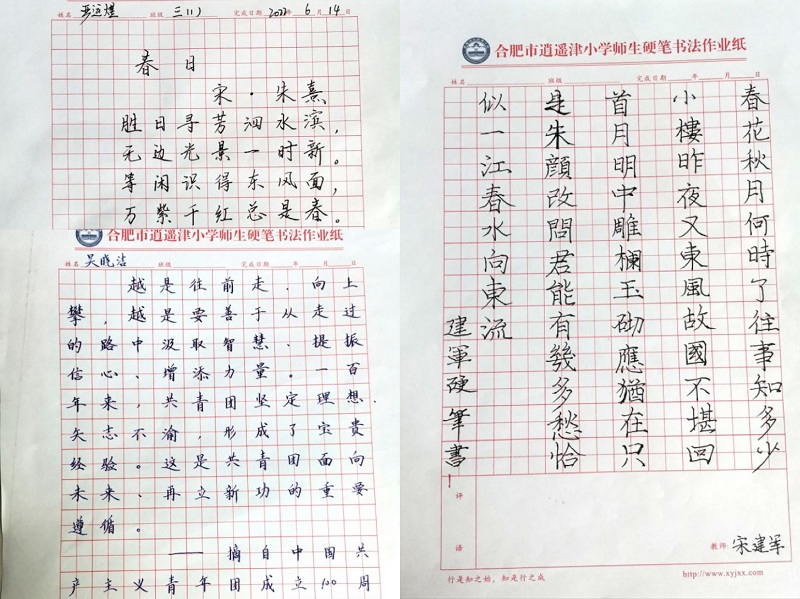 姓名 班级 三(1) 完成日期 2022年 6月14日
春日
宋·朱熹
胜日寻芳泗水滨，
无边光景一时新。
等闲识得东风面，
万紫千红总是春。
合肥市逍遥津小学师生硬笔书法作业纸
姓名 吴晓洁 班级 完成日期 年 月 日
越是往前走、向上
攀，越是要善于从走过
的路中汲取智慧、提振
信心、增添力量。一百
年来，共青团坚定理想、
矢志不渝，形成了宝贵
经验。这是共青团面向
未来、再立新功的重要
遵循。
——摘自中国共
产主义青年团成立100周
合肥市逍遥津小学师生硬笔书法作业纸
姓名 班级 完成日期 年 月 日
春花秋月何時了往事知多少
小樓昨夜又東風故國不堪回
首月明中雕欄玉砌應猶在只
是朱顔改問君能有幾多愁恰
似一江春水向東流
建軍硬筆書
评语
教师: 宋建军
行是知之始，知是行之成
http://www.xyjxx.com